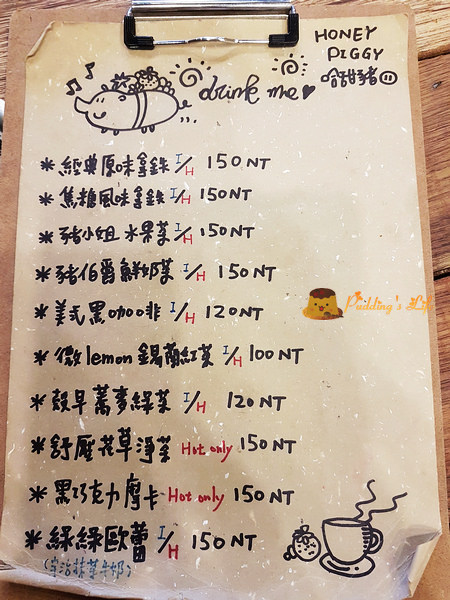 HONEY
PIGGY
哈甜豬
drink me
* 經典原味拿鉄 I/H 150 NT
* 焦糖風味拿鉄 I/H 150 NT
* 豬小姐水果茶 I/H 150 NT
* 豬伯爵鮮奶茶 I/H 150 NT
* 美式黑咖啡 I/H 120 NT
* 微lemon錫蘭紅茶 I/H 100 NT
* 穀早蕎麥綠茶 I/H 120 NT
* 舒壓花草淨茶 Hot only 150 NT
* 黑巧克力摩卡 Hot only 150 NT
* 綠綠歐蕾 I/H 150 NT
(宇治抹茶牛奶)
Pudding's Life